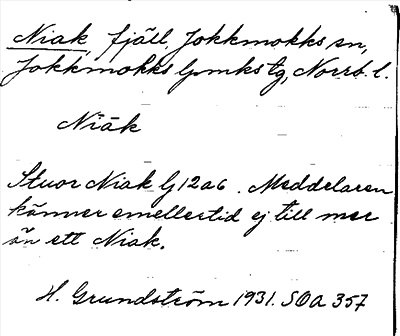 Niak, fjäll, Jokkmokks sn,
Jokkmokks lpmks tg, Norrb. l.
Niāk
Stuor Niak G12a6. Meddelaren
känner emellertid ej till mer
än ett Niak.
H. Grundström 1931. SOA 357